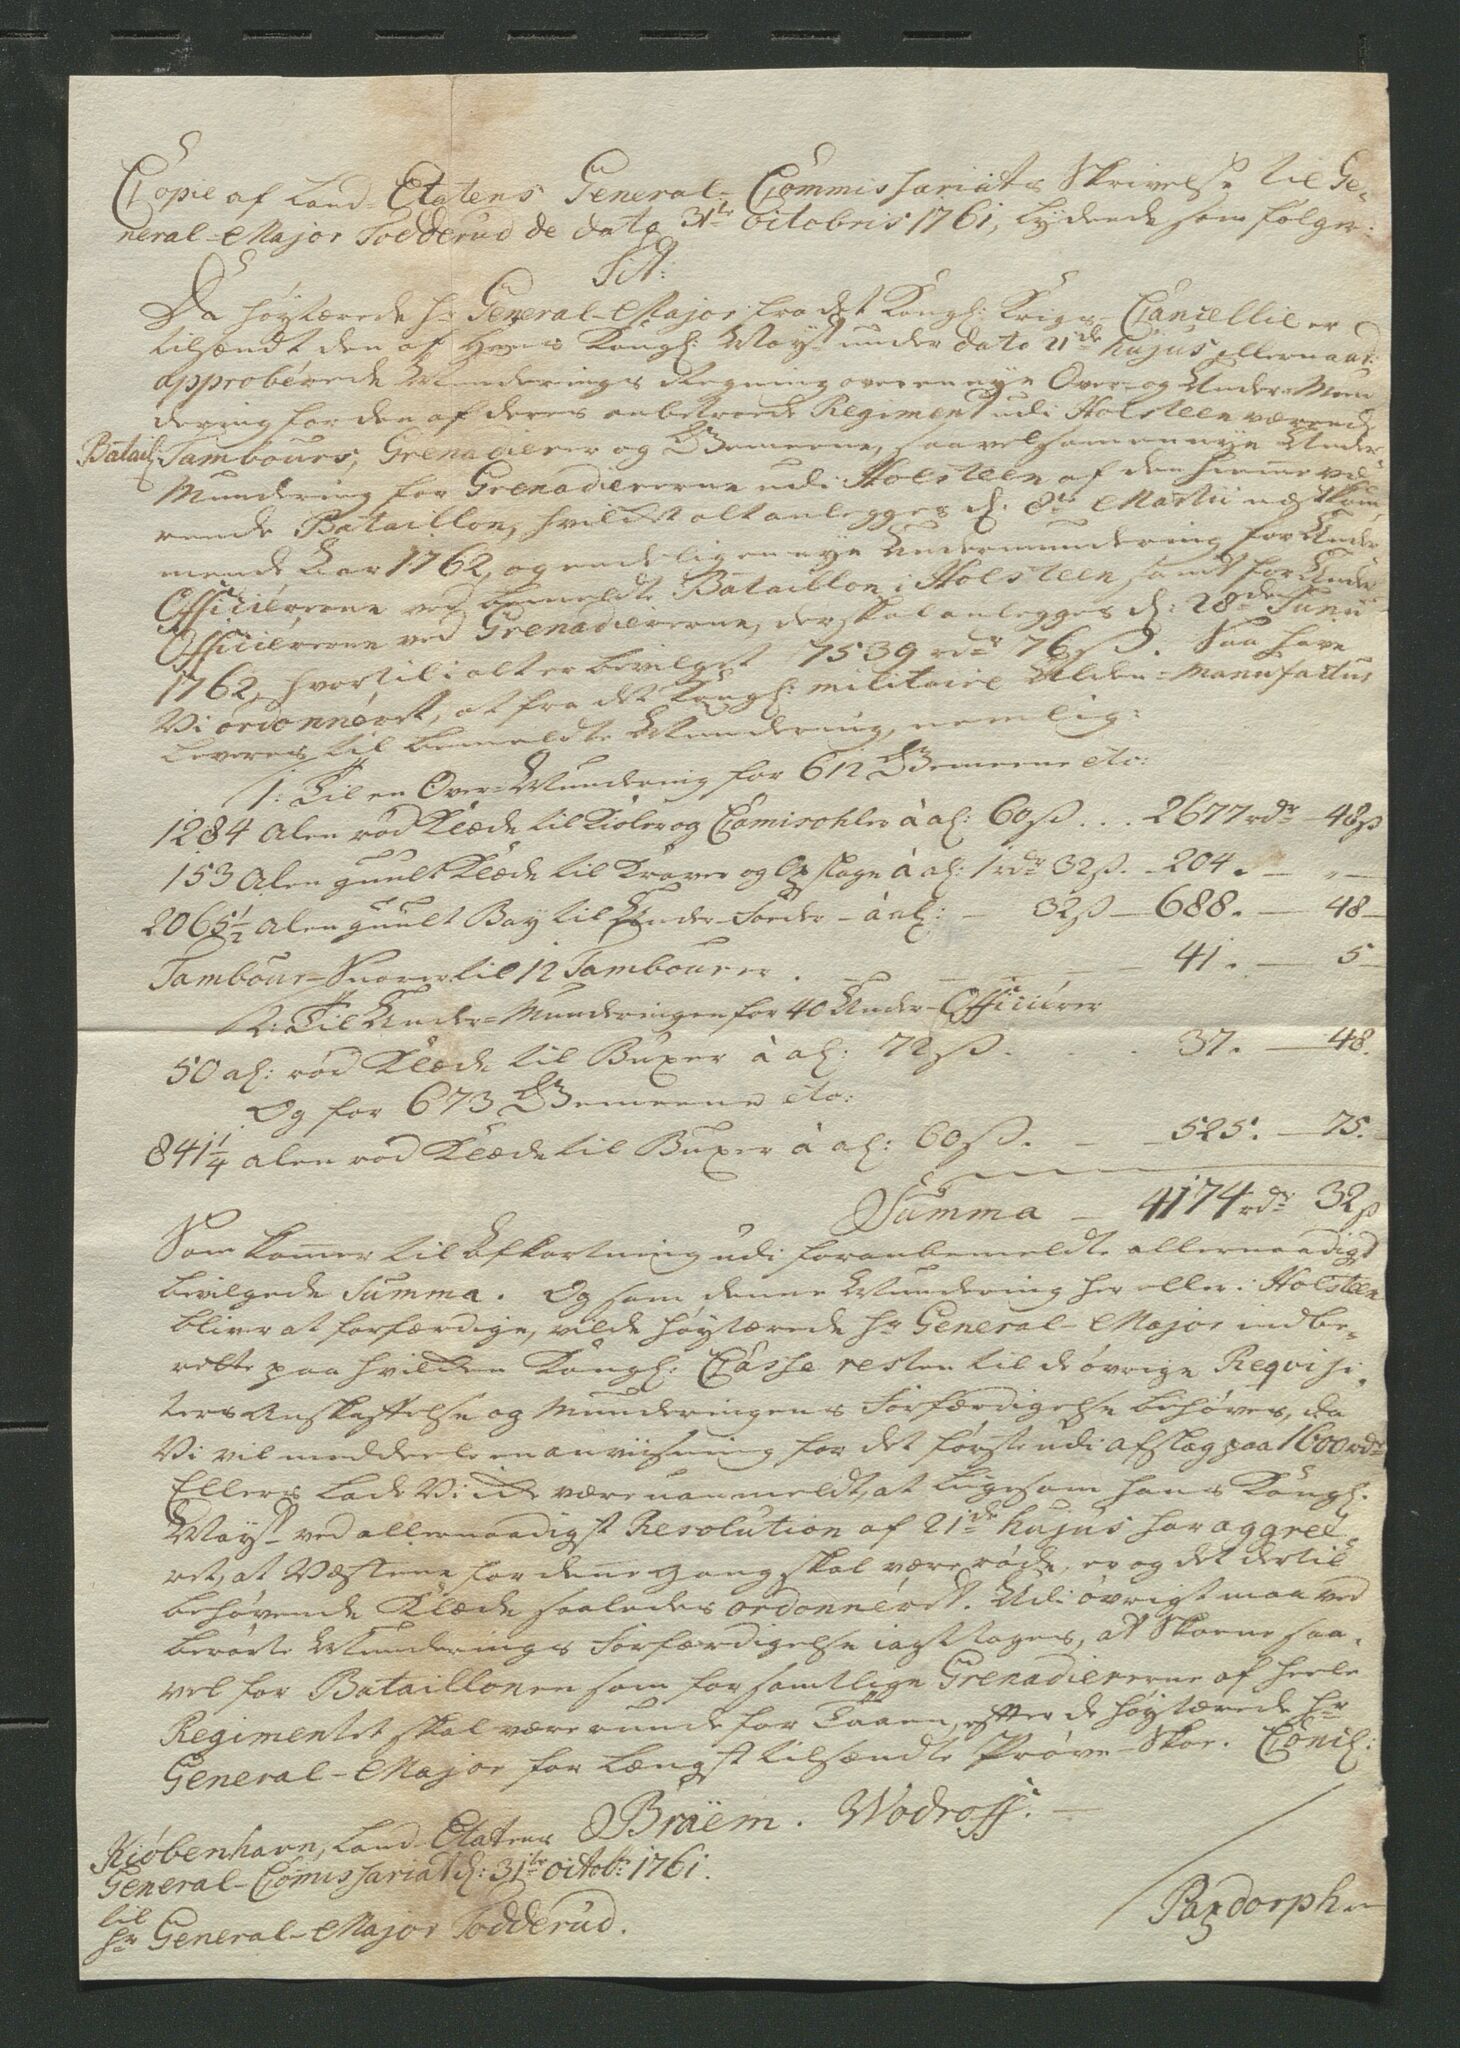 Copie af Land-Etatens General-Commissariats Skrivelse til Ge-
neral-Major Todderud de dato 31te octobris 1761, lydende som følger:
Tit:
Da høystærede Hr General-Major fra det Kongl: Krigs-Cancellie er
tilsendt den af Hans Kongl: Mayst under dato 21de hujus allernaad:
approberede Munderings Regning over en nye Over- og Under-Mun
dering for den af deres anbetroede Regiment udi Holsteen værende
Batail: Tambours, Grenaderer og Gemeene, saavelsom en nye Under
Mundering for Grenadiererne udi Holsteen af den hiemme væ-
rende Bataillon, hvilket alt anlegges d: 8de Martii næstkom-
mende Aar 1762, og endelig en nye Undermundering for Under
Officiererne ved bemeldte Bataillon i Holsteen, samt for Under
Officiererne ved Grenadiererne, der skal anlegges d: 28de Junii
1762, hvortil i alt er bevilget 7539 rdr 76 ß. Saa have
Vi ordonneret, at fra det Kongl: militaire Ulden-Manufactur
leveres til bemeldte Mundering, nemlig:
1: Til en Over-Mundering for 612 Gemeene etc:
1284 Alen rød Klæde til Kioler og Camisohler à al: 60 ß. . . 2677 rdr 48 ß
153 Alen guult Klæde til Kraver og Opslage à al: 1 rdr 32 ß. - 204. - " -
2065½ Alen guult Bay til Under-Foeder - à al: - 32 ß - 688. - 48 -
Tambour-Snorer til 12 Tambourer . - - - - 41. - 5 -
2: Til Under-Munderingen for 40 Under-Officierer
50 al: rød Klæde til Buxer à al: 72 ß. . . . 37. - 48.
Og for 673 Gemeene etc:
841¼ Alen rød Klæde til Buxer à al: 60 ß. - - 525. - 75.
Summa - 4174 rdr 32 ß
Som kommer til Afkortning udi foranbemeldte allernaadigst
bevilgede Summa. Og som denne Mundering her eller i Holsteen
bliver at forfærdige, vilde høystærede Hr General-Major indbe-
rette paa hvilken Kongl: Casse resten til de øvrige Reqvisi-
ters Anskaffelse og Munderingens Forfærdigelse behøves, da
Vi vil meddeele en anviisning for det første udi afslag paa 1600 rdr
Ellers lade Vi Dem være uanmeldt, at ligesom Hans Kongl:
Mayst ved allernaadigst Resolution af 21de hujus har aggree-
ret, at Væstene for denne gang skal være røde, er og det dertil
behøvende Klæde saaledes ordonneret. Udi øvrigt maa ved
berørte Munderings Forfærdigelse iagttages, at Skoene saa-
vel for Bataillonen som for samtlige Grenadiererne af heele
Regimentet skal være runde for Taaen, efter de høystærede Hr
General-Major for længst tilsendte Prøve-Skoe. Concl:
Kiøbenhavn, Land-Etatens Braëm. Wodroff. -
General-Comissariat d: 31te octobr: 1761.
til
Hr General-Major Todderud.
Paxdorph